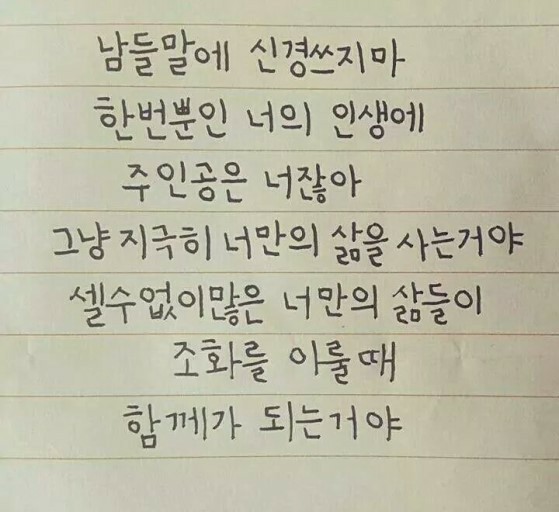 남들말에 신경쓰지마
한번뿐인 너의 인생에
주인공은 너잖아
그냥 지극히 너만의 삶을 사는거야
셀수없이많은 너만의 삶들이
조화를 이룰때
함께가 되는거야